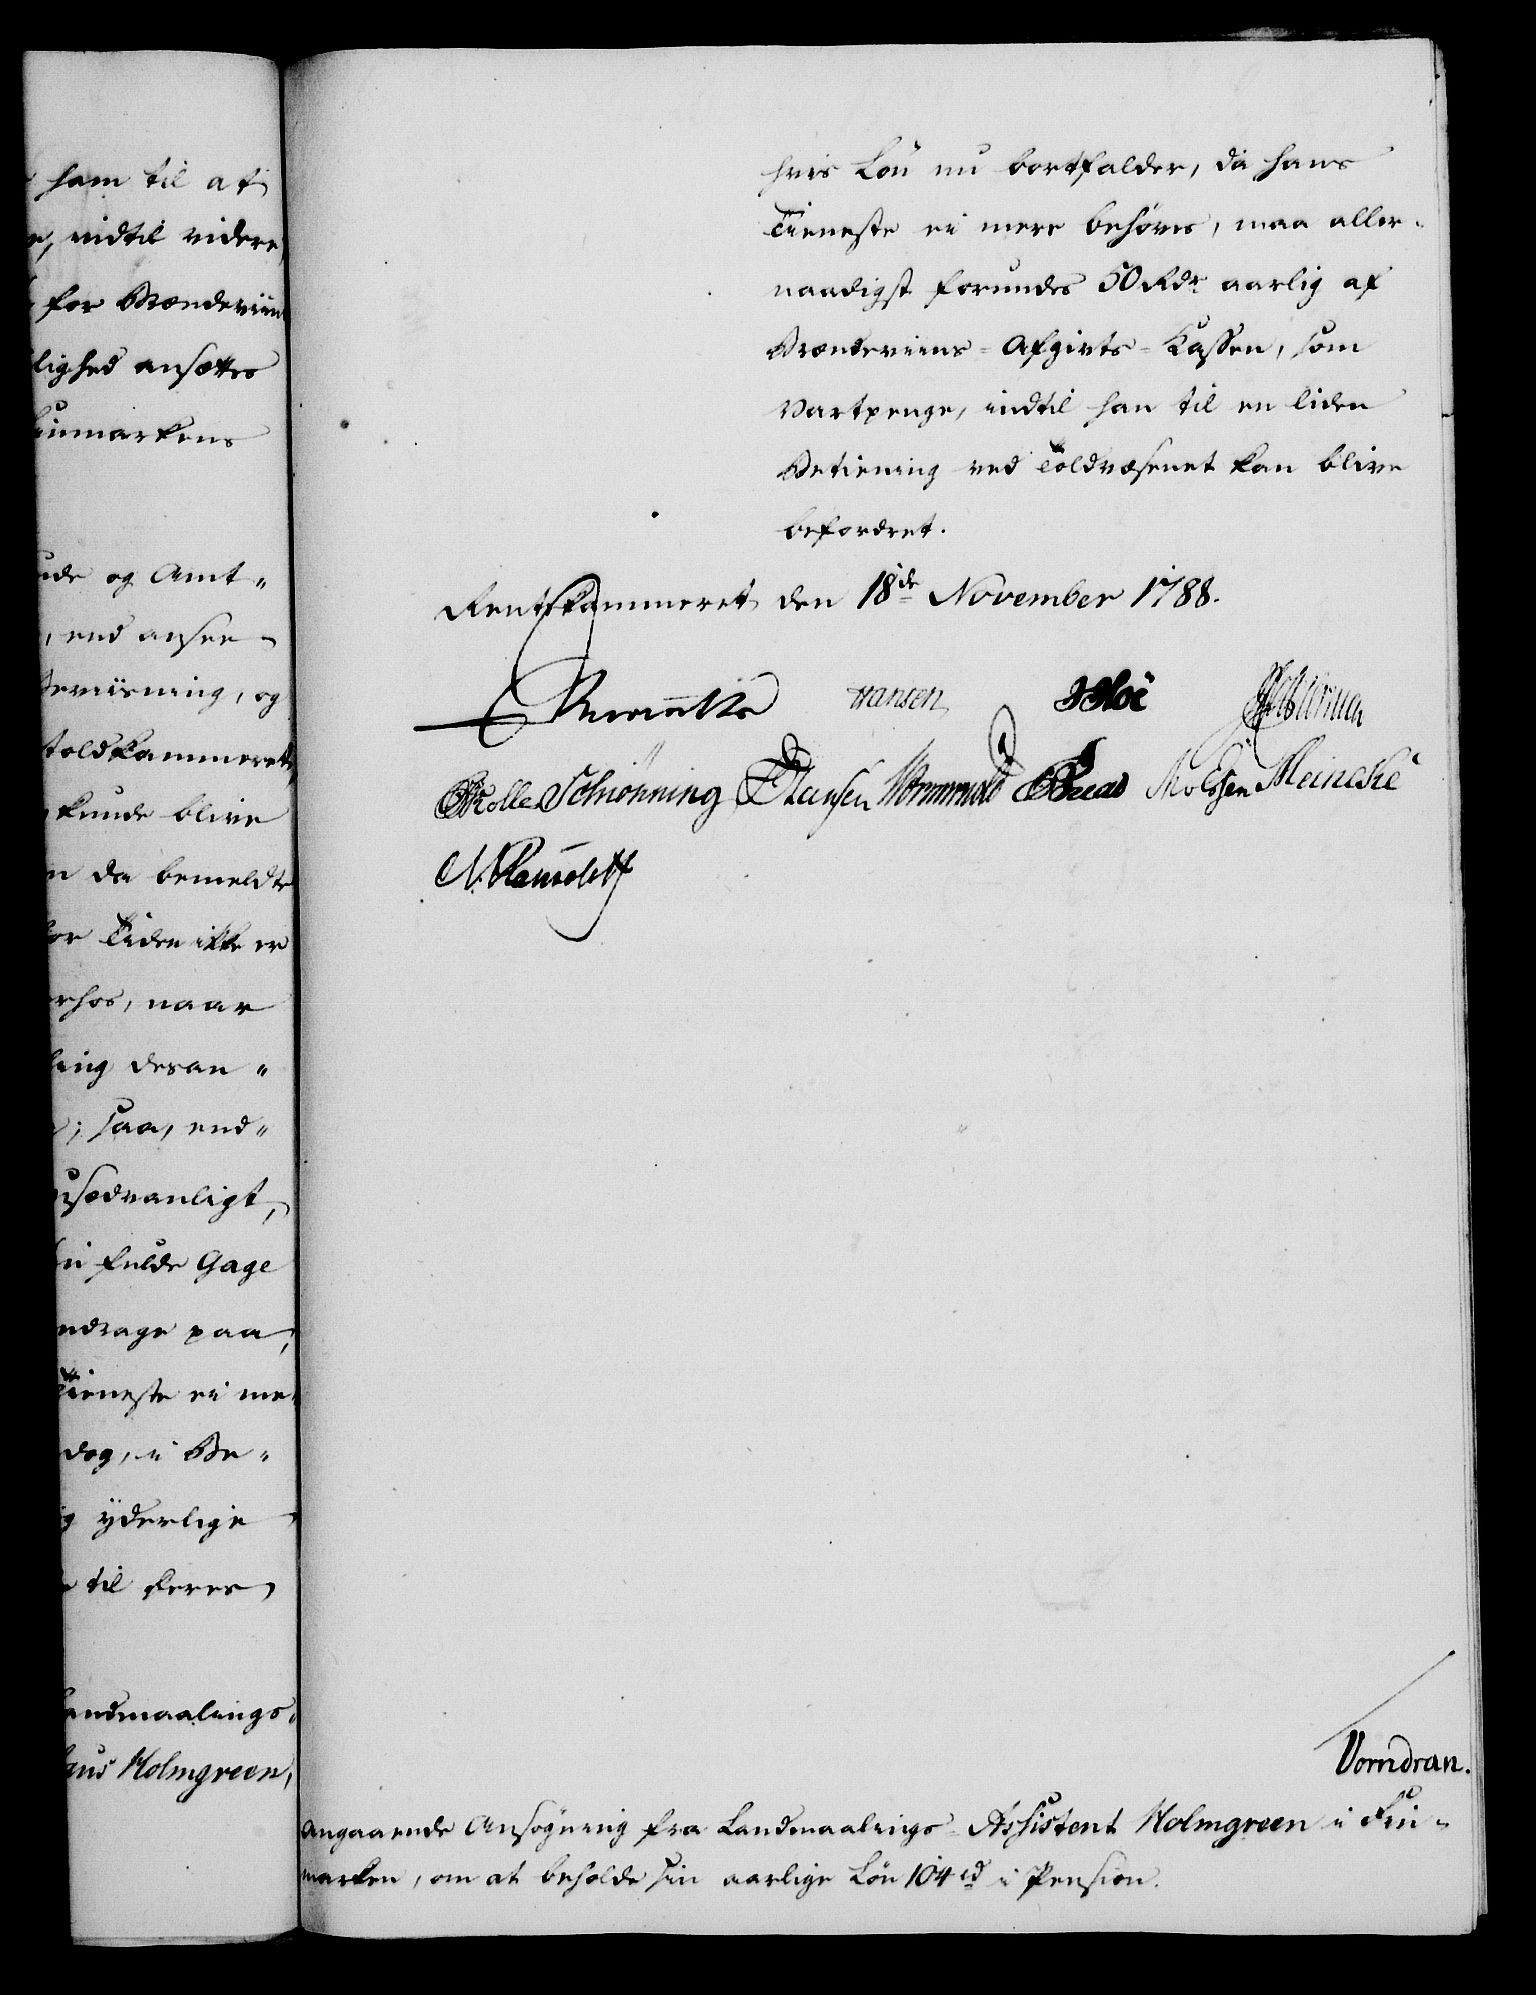 ham til at
indtil videre
for Brændeviin
lighed ansættes
inmarkens
og Amt-
, end ansee
eviisning, og
toldkammeret
kunde blive
da bemeldte
Tiden ikke er
naar
desan-
; saa, end-
usædvanligt,
fulde Gage
ndrage paa,
Tieneste ei me-
dog, i Be-
yderlige
til deres
andmaalings-
Holmgreen,
hvis Løn nu bortfalder, da hans
Tieneste ei mere behøves, maa aller-
naadigst forundes 50 Rdr aarlig af
Brændeviins-Afgivts-Kassen, som
Vartpenge, indtil han til en liden
Betiening ved Toldvæsenet kan blive
befordret.
Rentekammeret den 18de November 1788.
Hansen
Rolle Schiønning Hansen Wormwold Molssen Meincke
Vorndran.
Angaaende Ansøgning fra Landmaalings-Assistent Holmgreen i Fin-
marken, om at beholde sin aarlige Løn 104 rd i Pension.